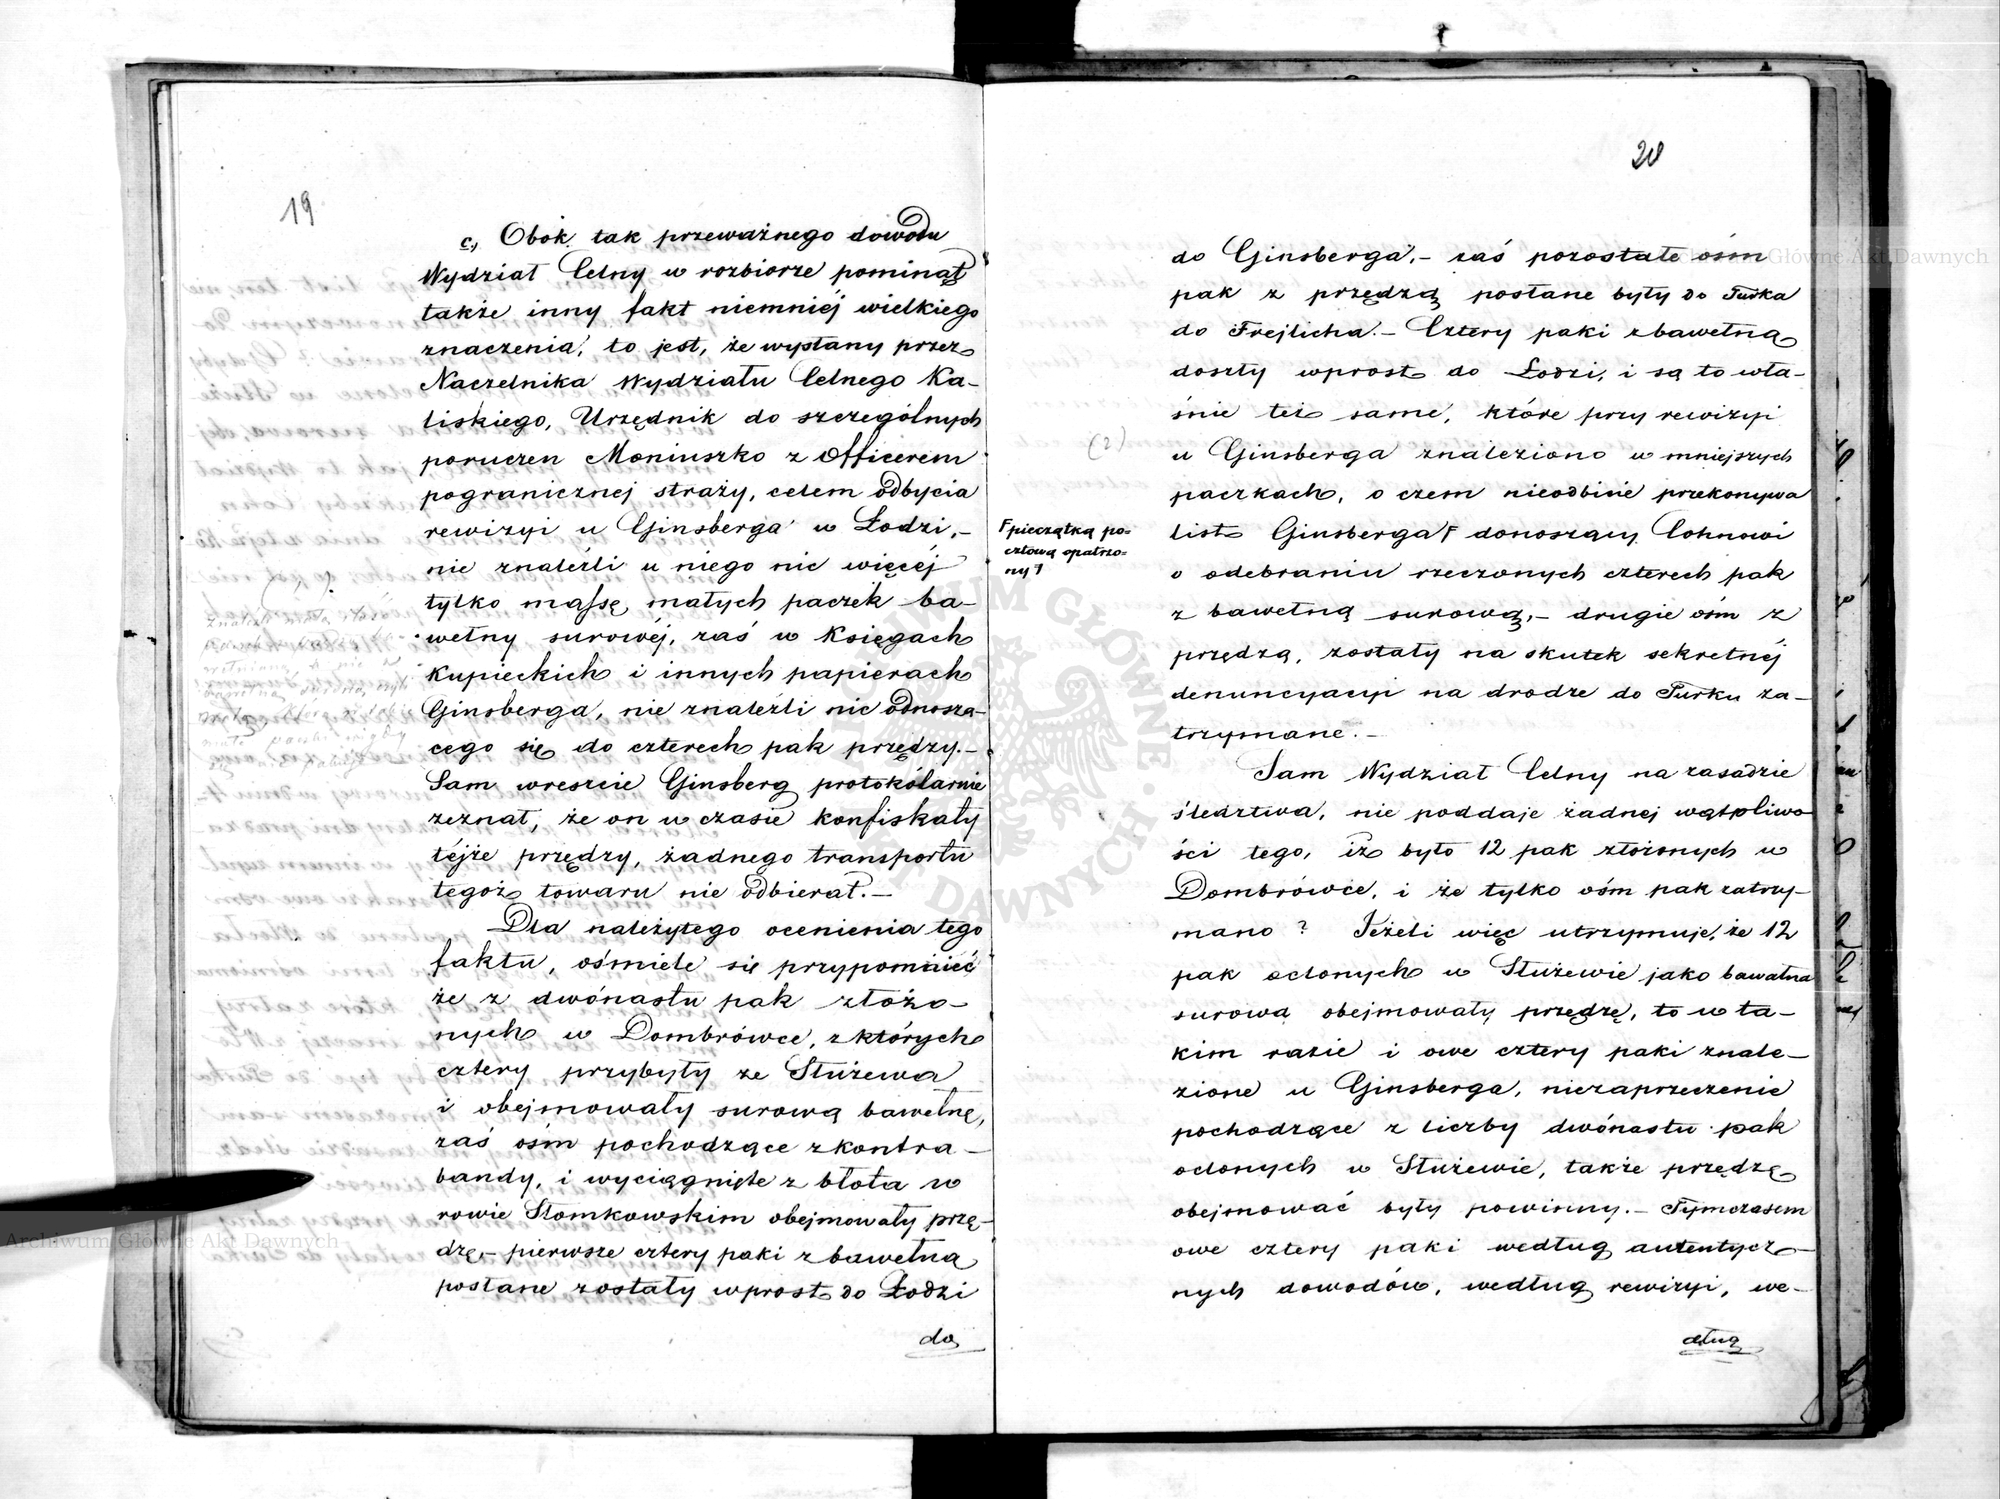 19
c, Obok tak przeważnego dowodu
Wydział Celny w rozbiorze pominął
także inny fakt niemniéj wielkiego
znaczenia, to jest, że wysłany przez
Naczelnika Wydziału Celnego Ka-
liskiego, Urzędnik do szczególnych
poruczeń Moniuszko z Officerem
pogranicznej straży, celem odbycia
rewizyi u Ginsberga w Łodzi,-
nie znaleźli u niego nic więcéj
tylko massę małych paczek ba-
wełny surowéj, zaś w Księgach
kupieckich i innych papierach
Ginsberga, nie znaleźli nic odnoszą-
cego się do czterech pak przędzy.-
Sam wreszcie Ginsberg protokólarnie
zeznał, że on w czasie konfiskaty
téjże przędzy, żadnego transportu
tegoż towaru nie odbierał.-
Dla należytego ocenienia tego
faktu, ośmielę się przypomnieć
że z dwónastu pak złożo-
nych w Dombrówce, z których
cztery przybyły ze Służewa
i obejmowały surową bawełnę,
zaś ośm pochodzące z kontra-
bandy, i wyciągnięte z błota w
rowie Słomkowskim obejmowały przę-
dzę,- pierwsze cztery paki z bawełną
posłane zostały wprost do Łodzi
do
20
do Ginsberga,- zaś pozostałe ośm
pak z przędzą posłane były do Turka
do Frejlicha.- Cztery paki z bawełną
doszły wprost do Łodzi, i są to wła-
śnie też same, które przy rewizyi
(2)
u Ginsberga znaleziono w mniejszych
paczkach, o czem nieodbicie przekonywa
list Ginsberga F donoszący Cohnowi
F pieczątką po=
cztową opatrzo=
ny F
o odebraniu rzeczonych czterech pak
z bawełną surową,- drugie ośm z
przędzą, zostały na skutek sekretnéj
denuncyacyi na drodze do Turku za-
trzymane.-
Sam Wydział Celny na zasadzie
śledztwa, nie poddaje żadnej wątpliwo-
ści tego, iż było 12 pak złożonych w
Dombrówce, i że tylko ośm pak zatrzy-
mano ? Jeżeli więc utrzymuje, że 12
pak oclonych w Służewie jako bawełna
surowa obejmowały przędzę, to w ta-
kim razie i owe cztery paki znale-
zione u Ginsberga, niezaprzeczenie
pochodzące z liczby dwónastu pak
oclonych w Służewie, także przędzę
obejmować były powinny.- Tymczasem
owe cztery paki według autentycz-
nych dowodów, według rewizyi, we-
dług
Archiwum Główne Akt Dawnych
Archiwum Główne Akt Dawnych
ARCHIWUM GŁÓWNE AKT DAWNYCH